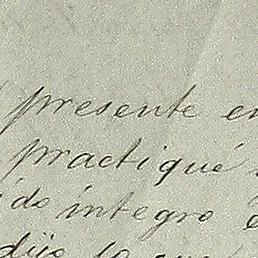 presente en
practiqué
ido integro
dijo lo que